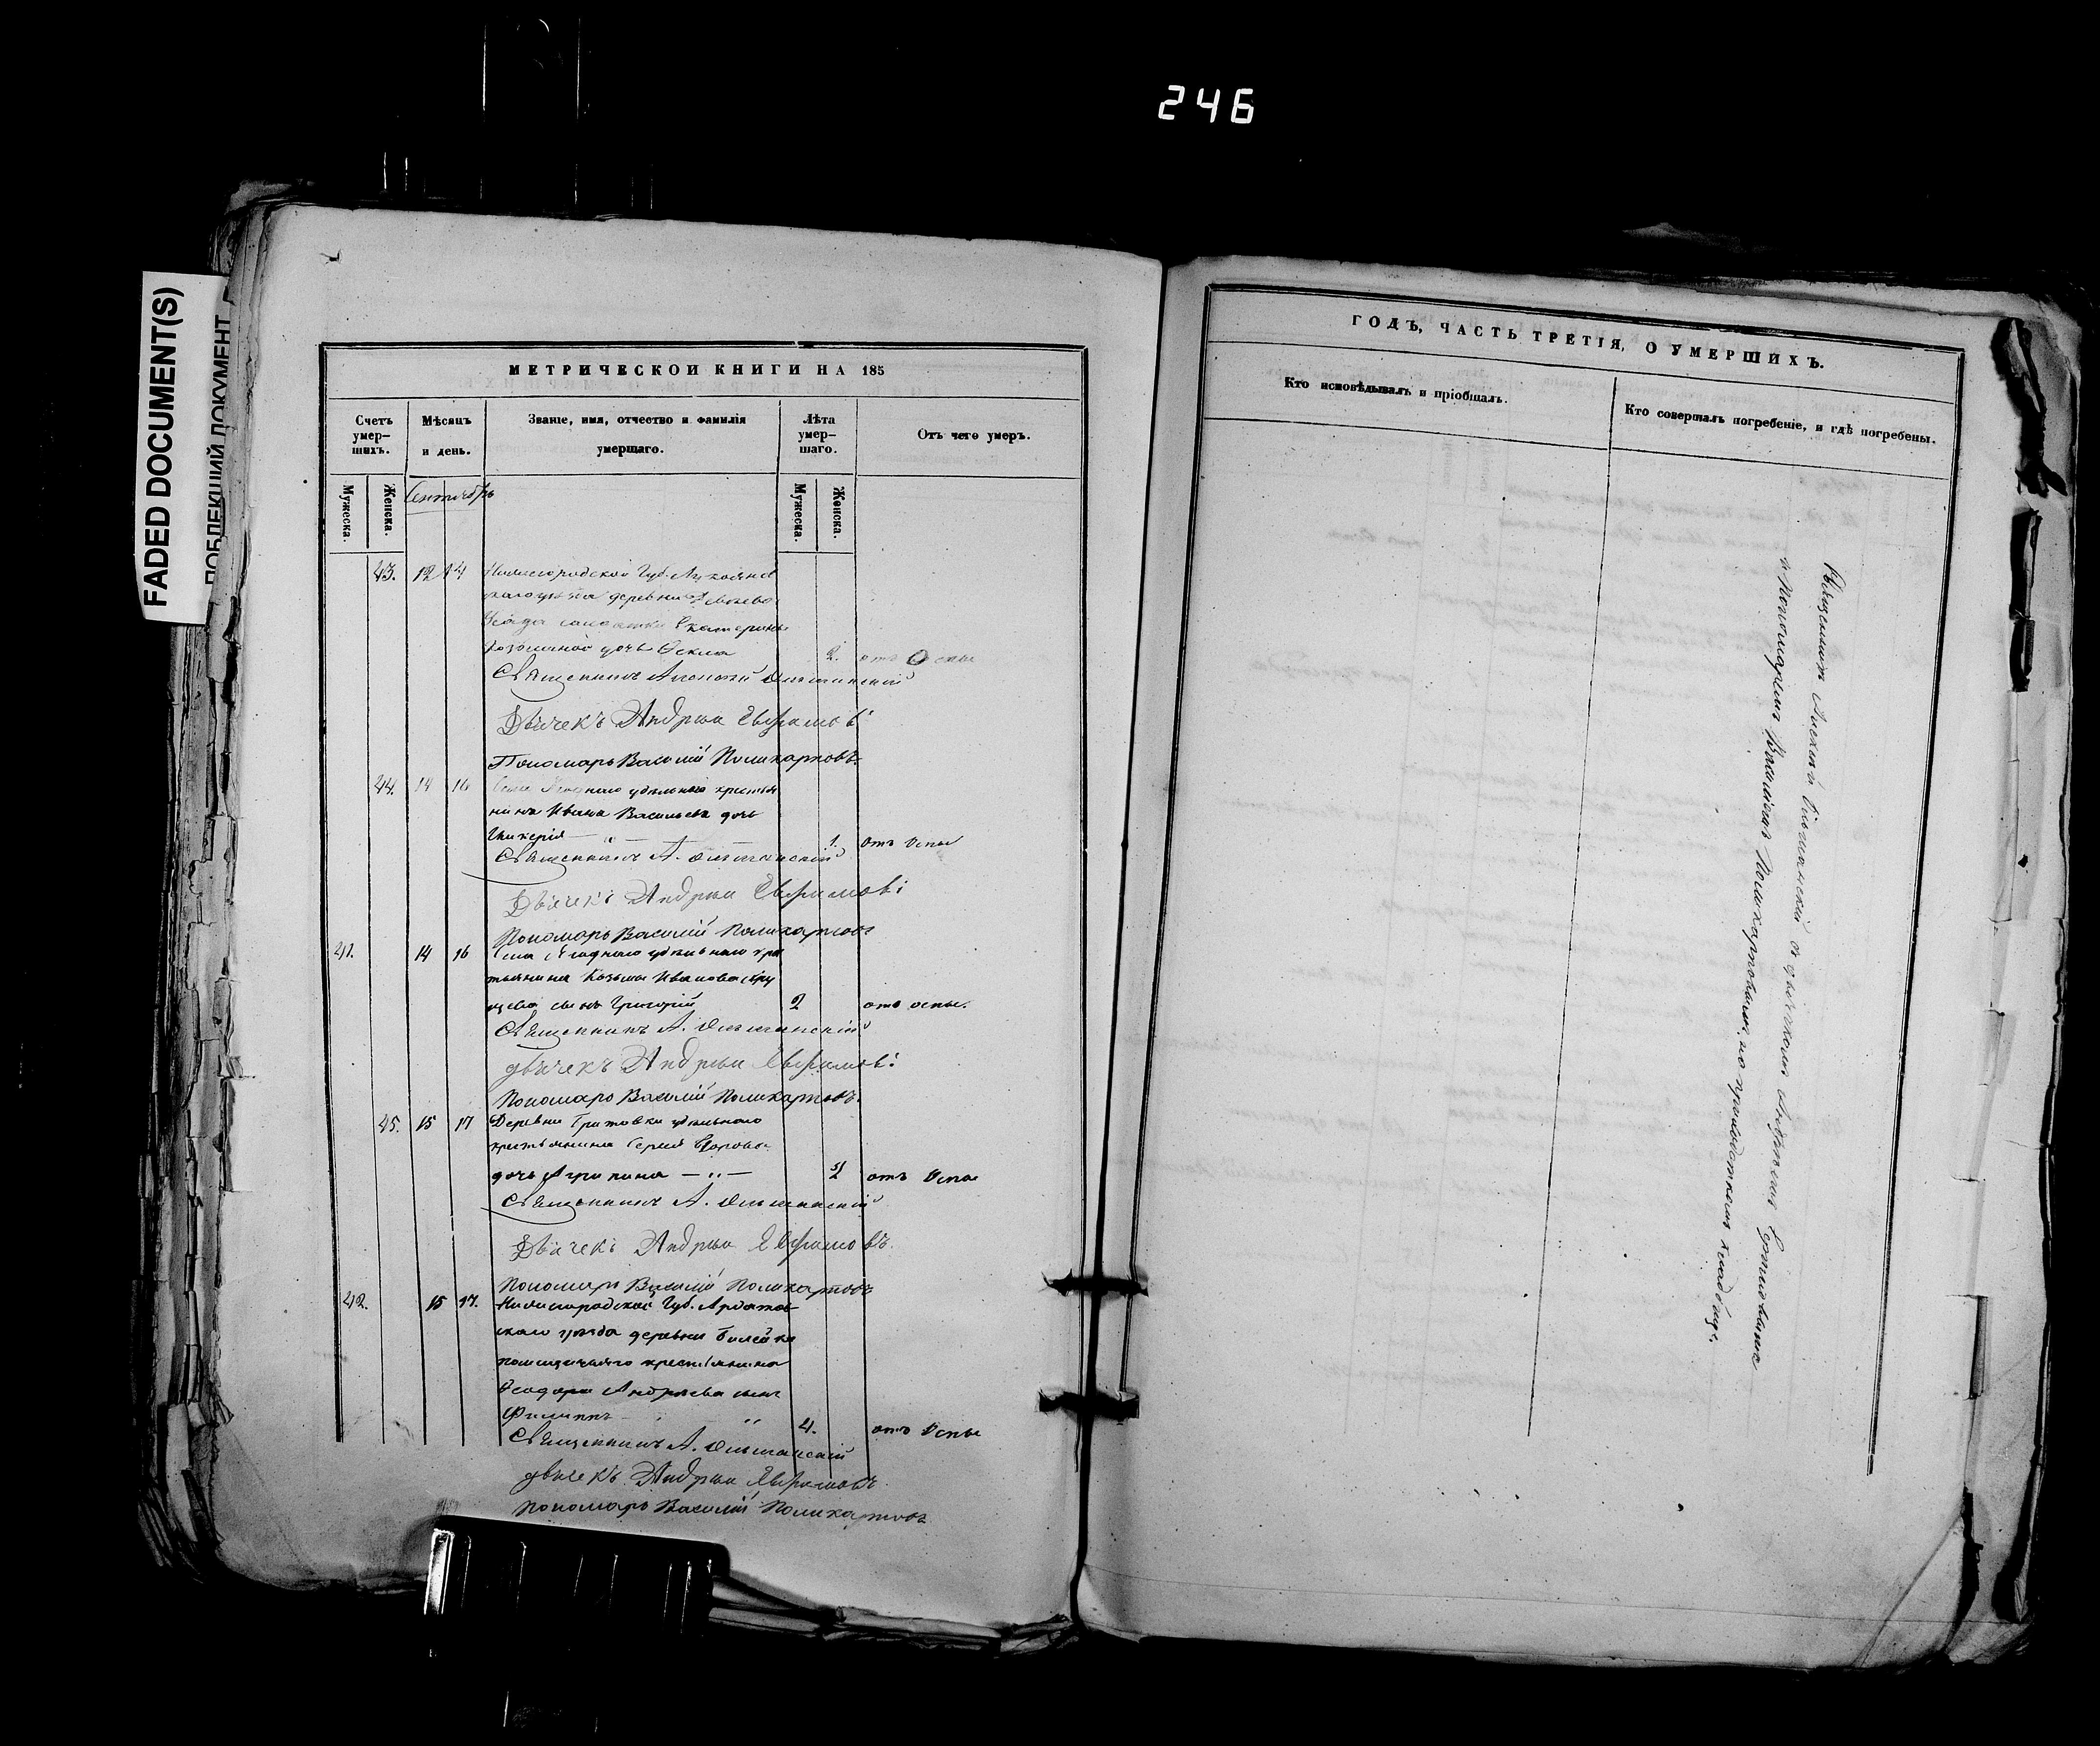 246
FADED DOCUMENT(S)
ПОБЛЕКШИЙ ДОКУМЕНТ
МЕТРИЧЕСКОЙ КНИГИ НА 185
Счетъ умер-шихъ.
Мѣсяцъ и день.
Званіе, имя, отчество и фамилія умершаго.
Лѣта умер-шаго.
Отъ чего умеръ.
Мужеска.
Женска.
Сентябрь
Мужеска.
Женска.
43. 12 14 Нижегородской Губ. Лукоянов
скаго уѣзда деревни
Усада солдатки Екатерины
дочь 2. отъ Оспы
Священникъ Алексій
Дьячекъ Андрей Евфимовъ
Пономарь Василій Поликарповъ.
44. 14 16 удѣльнаго крестья
нина Ивана Васильева дочь
Гликерія 1. отъ Оспы
Священникъ А.
Дьячекъ Андрей Евфимовъ
Пономарь Василій Поликарповъ
41. 14 16 Села удѣльнаго кре
тьянина Козьмы Иванова
сынъ Григорій 2 отъ оспы.
Священникъ А.
дьячекъ Андрей Евфимовъ
Пономарь Василій Поликарповъ.
45. 15 17 Деревни удѣльнаго
крестьянина Сергія
дочь Агрипина — „ — 2 отъ Оспы
Священникъ А.
Дьячекъ Андрей Евфимовъ.
Пономарь Василій Поликарповъ
42. 15 17. Нижегородской Губ. Ардатов
скаго уѣзда деревни
помѣщичьяго крестьянина
Ѳеодора Андреева сынъ
Филиппъ 4. отъ Оспы
Священникъ А.
дьячекъ Андрей Евфимовъ.
пономарь Василій Поликарповъ
ГОДЪ, ЧАСТЬ ТРЕТІЯ, О УМЕРШИХЪ.
Кто исповѣдывалъ и пріобщалъ.
Кто совершалъ погребеніе, и гдѣ погребены.
Священникъ Алексій съ дьячкомъ Андреемъ
и Пономаремъ Василіемъ Поликарповымъ, на приходскомъ кладбищѣ.